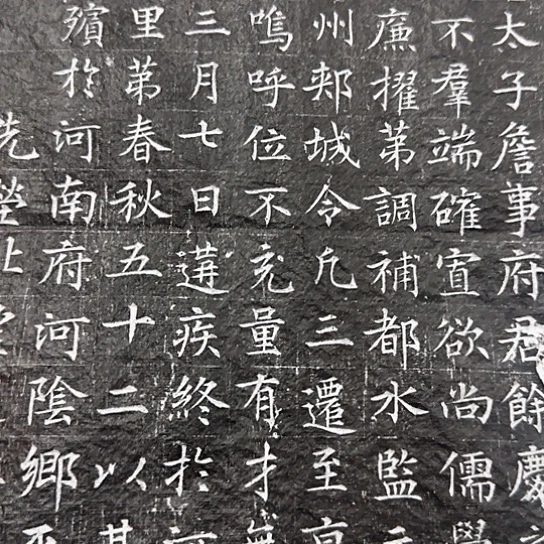 太子詹事府君餘慶
不羣端確寡欲尚儒學
廉擢第調補都水監
州郟城令凡三遷至京
嗚呼位不充量有才無
三月七日遘疾終於河
里第春秋五十二以其
殯於河南府河陰鄉
先塋北